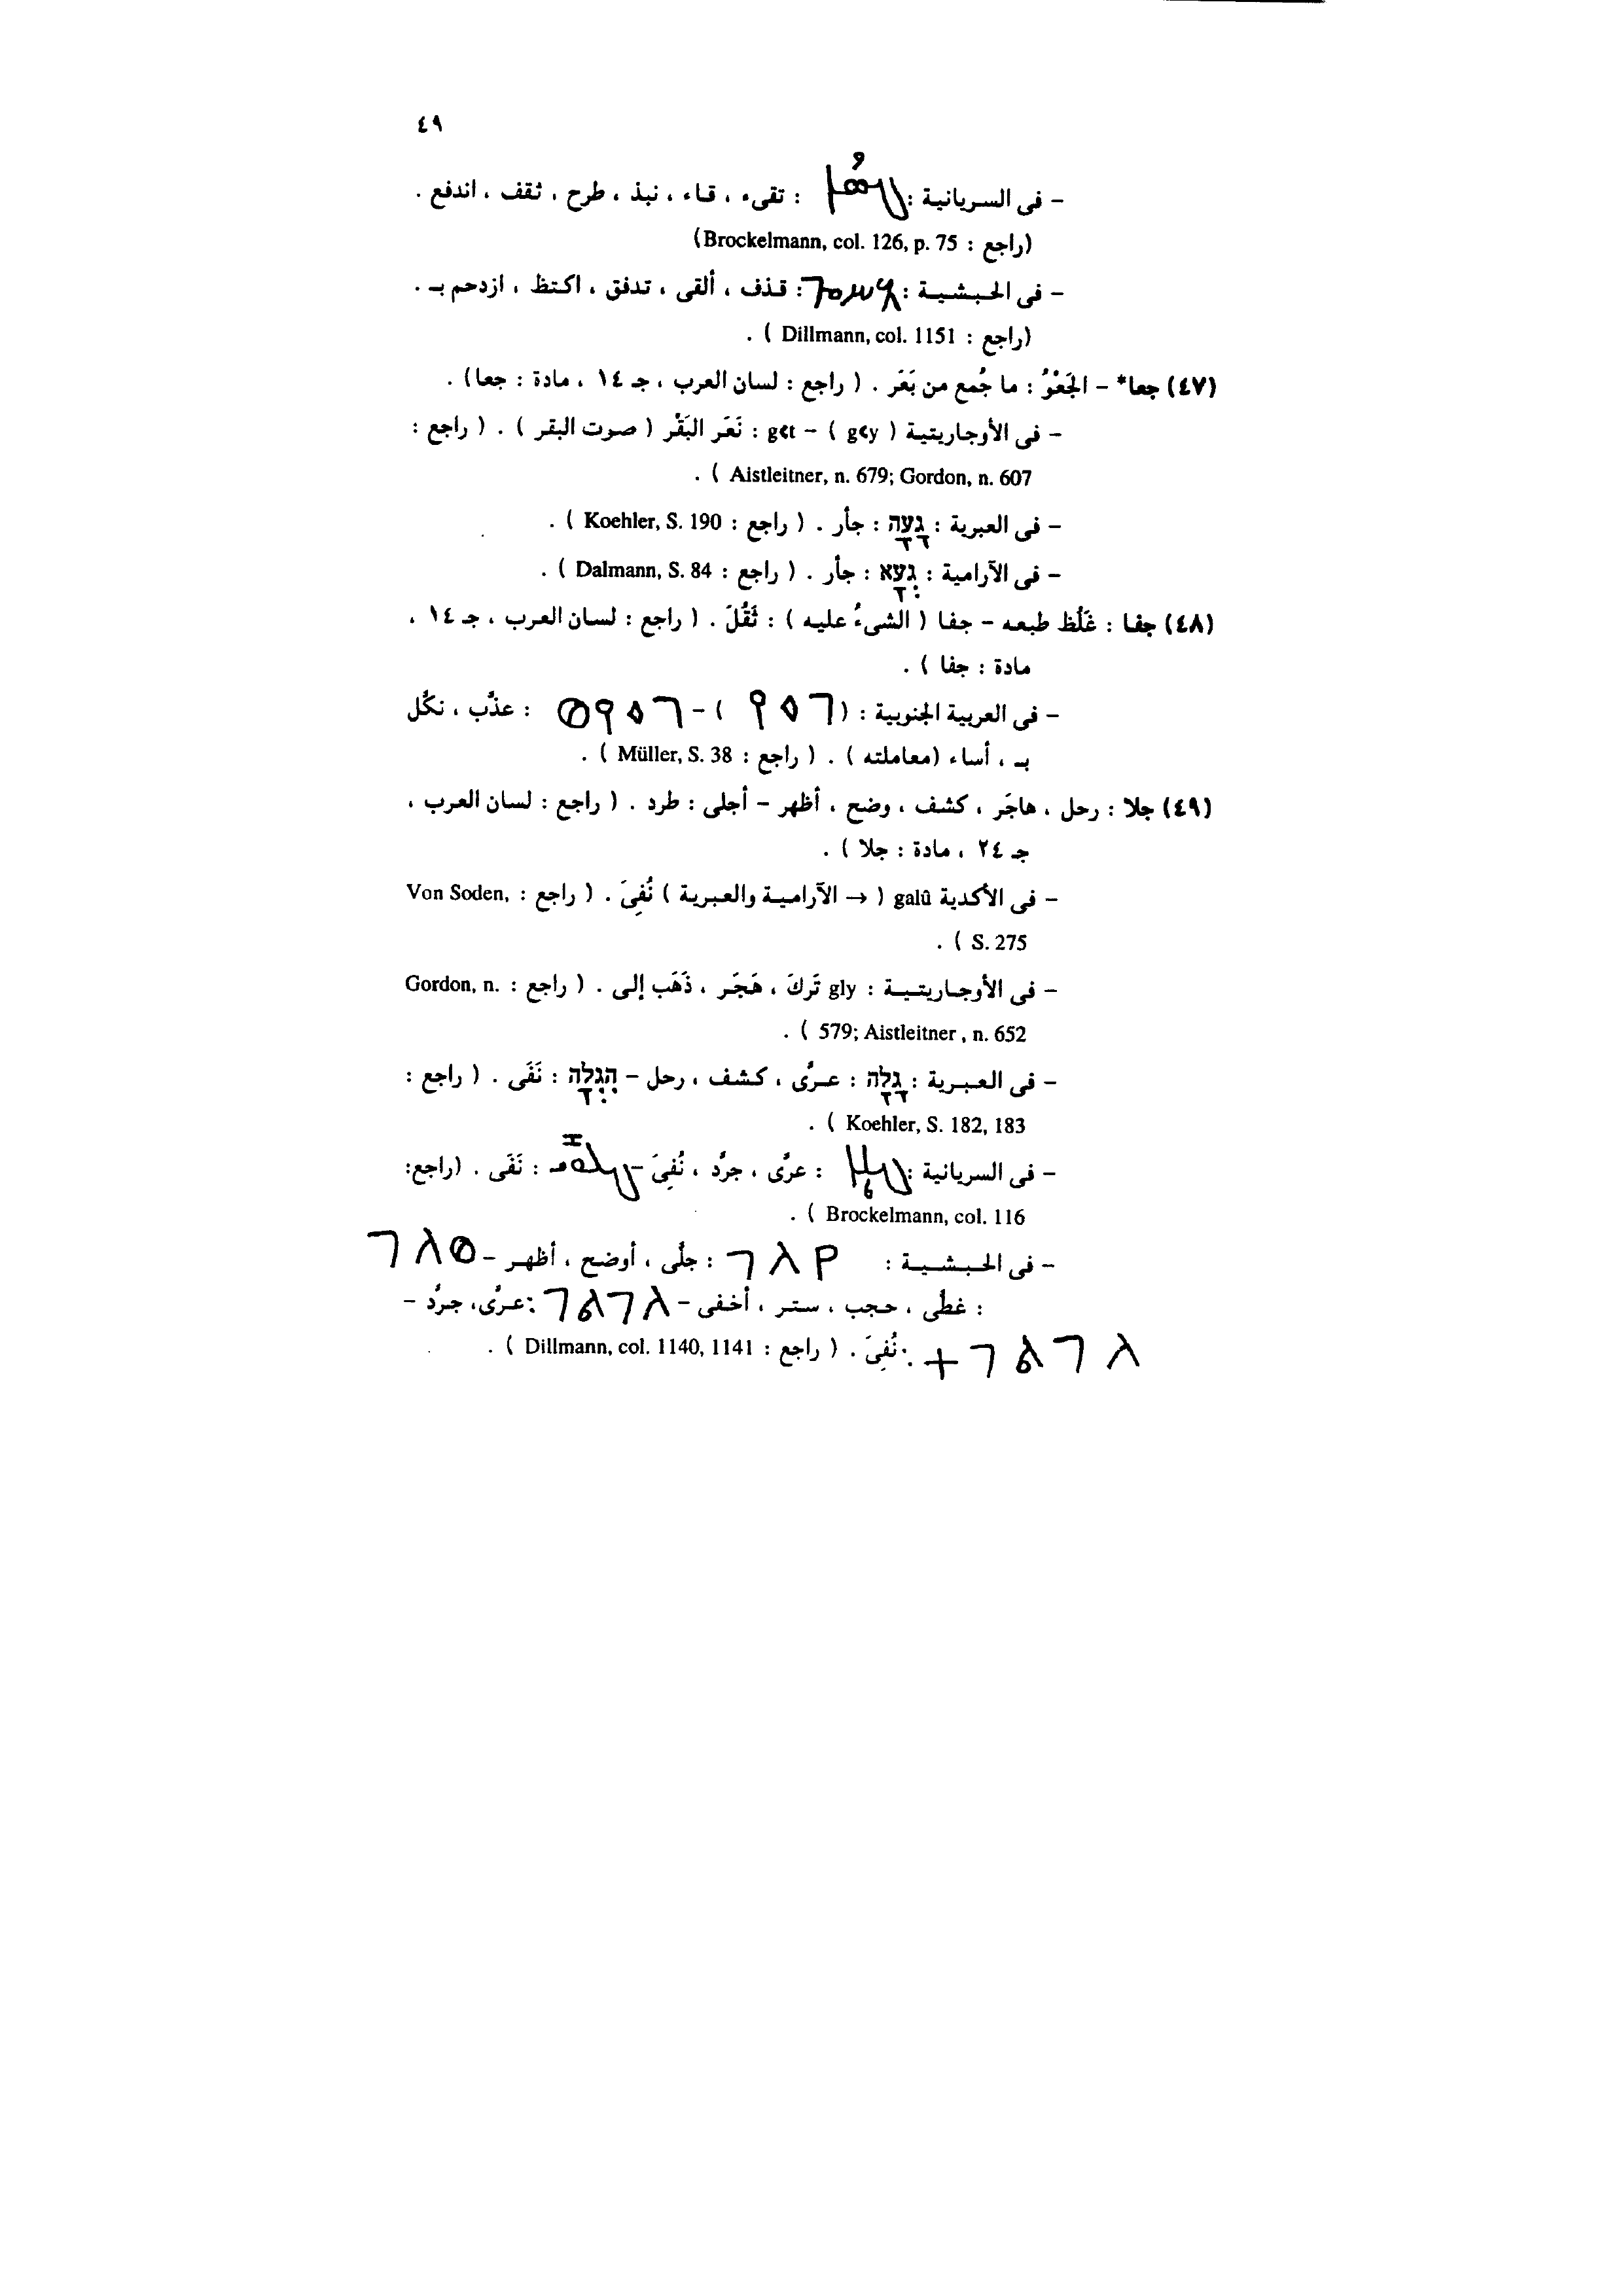 ٤٩
– فى السريانية : : تقىء ، قاء ، نبذ ، طرح ، ثقف ، اندفع .
(راجع : Brockelmann, col. 126, p. 75)
– فى الحبشية : : قذف ، ألقى ، تدفق ، اكتظ ، ازدحم بـ .
(راجع : Dillmann, col. 1151 ) .
(٤٧) جعا* – الجَعْوُ : ما جُمع من بَعَر . ( راجع : لسان العرب ، جـ ١٤ ، مادة : جعا) .
– فى الأوجاريتية ( g<y ) – g<t : نَعَر البَقَر ( صوت البقر ) . ( راجع :
Aistleitner, n. 679; Gordon, n. 607 ) .
– فى العبرية : גָּעָה : جأر . ( راجع : Koehler, S. 190 ) .
– فى الآرامية : גְּעָא : جأر . ( راجع : Dalmann, S. 84 ) .
(٤٨) جفا : غَلُظ طبعه – جفا ( الشىءُ عليه ) : ثَقُلَ . ( راجع : لسان العرب ، جـ ١٤ ،
مادة : جفا ) .
– فى العربية الجنوبية : ( ) – : عذَّب ، نكَّل
بـ ، أساء (معاملته ) . ( راجع : Müller, S. 38 ) .
(٤٩) جلا : رحل ، هاجَر ، كشف ، وضح ، أظهر – أجلى : طرد . ( راجع : لسان العرب ،
جـ ٢٤ ، مادة : جلا ) .
– فى الأكدية galû ( → الآرامية والعبرية ) نُفِىَ . ( راجع : Von Soden,
S. 275 ) .
– فى الأوجاريتية : gly تَركَ ، هَجَر ، ذَهَب إلى . ( راجع : Gordon, n.
579; Aistleitner , n. 652 ) .
– فى العبرية : גָּלָה : عرَّى ، كشف ، رحل – הִגְלָה : نَفَى . ( راجع :
Koehler, S. 182, 183 ) .
– فى السريانية : : عرَّى ، جرَّد ، نُفِىَ – : نَفَى . (راجع:
Brockelmann, col. 116 ) .
– فى الحبشية : : جلَّى ، أوضح ، أظهر –
: غطَّى ، حجب ، ستر ، أخفى – :عرَّى، جرَّد –
: نُفِىَ . ( راجع : Dillmann, col. 1140, 1141 ) .